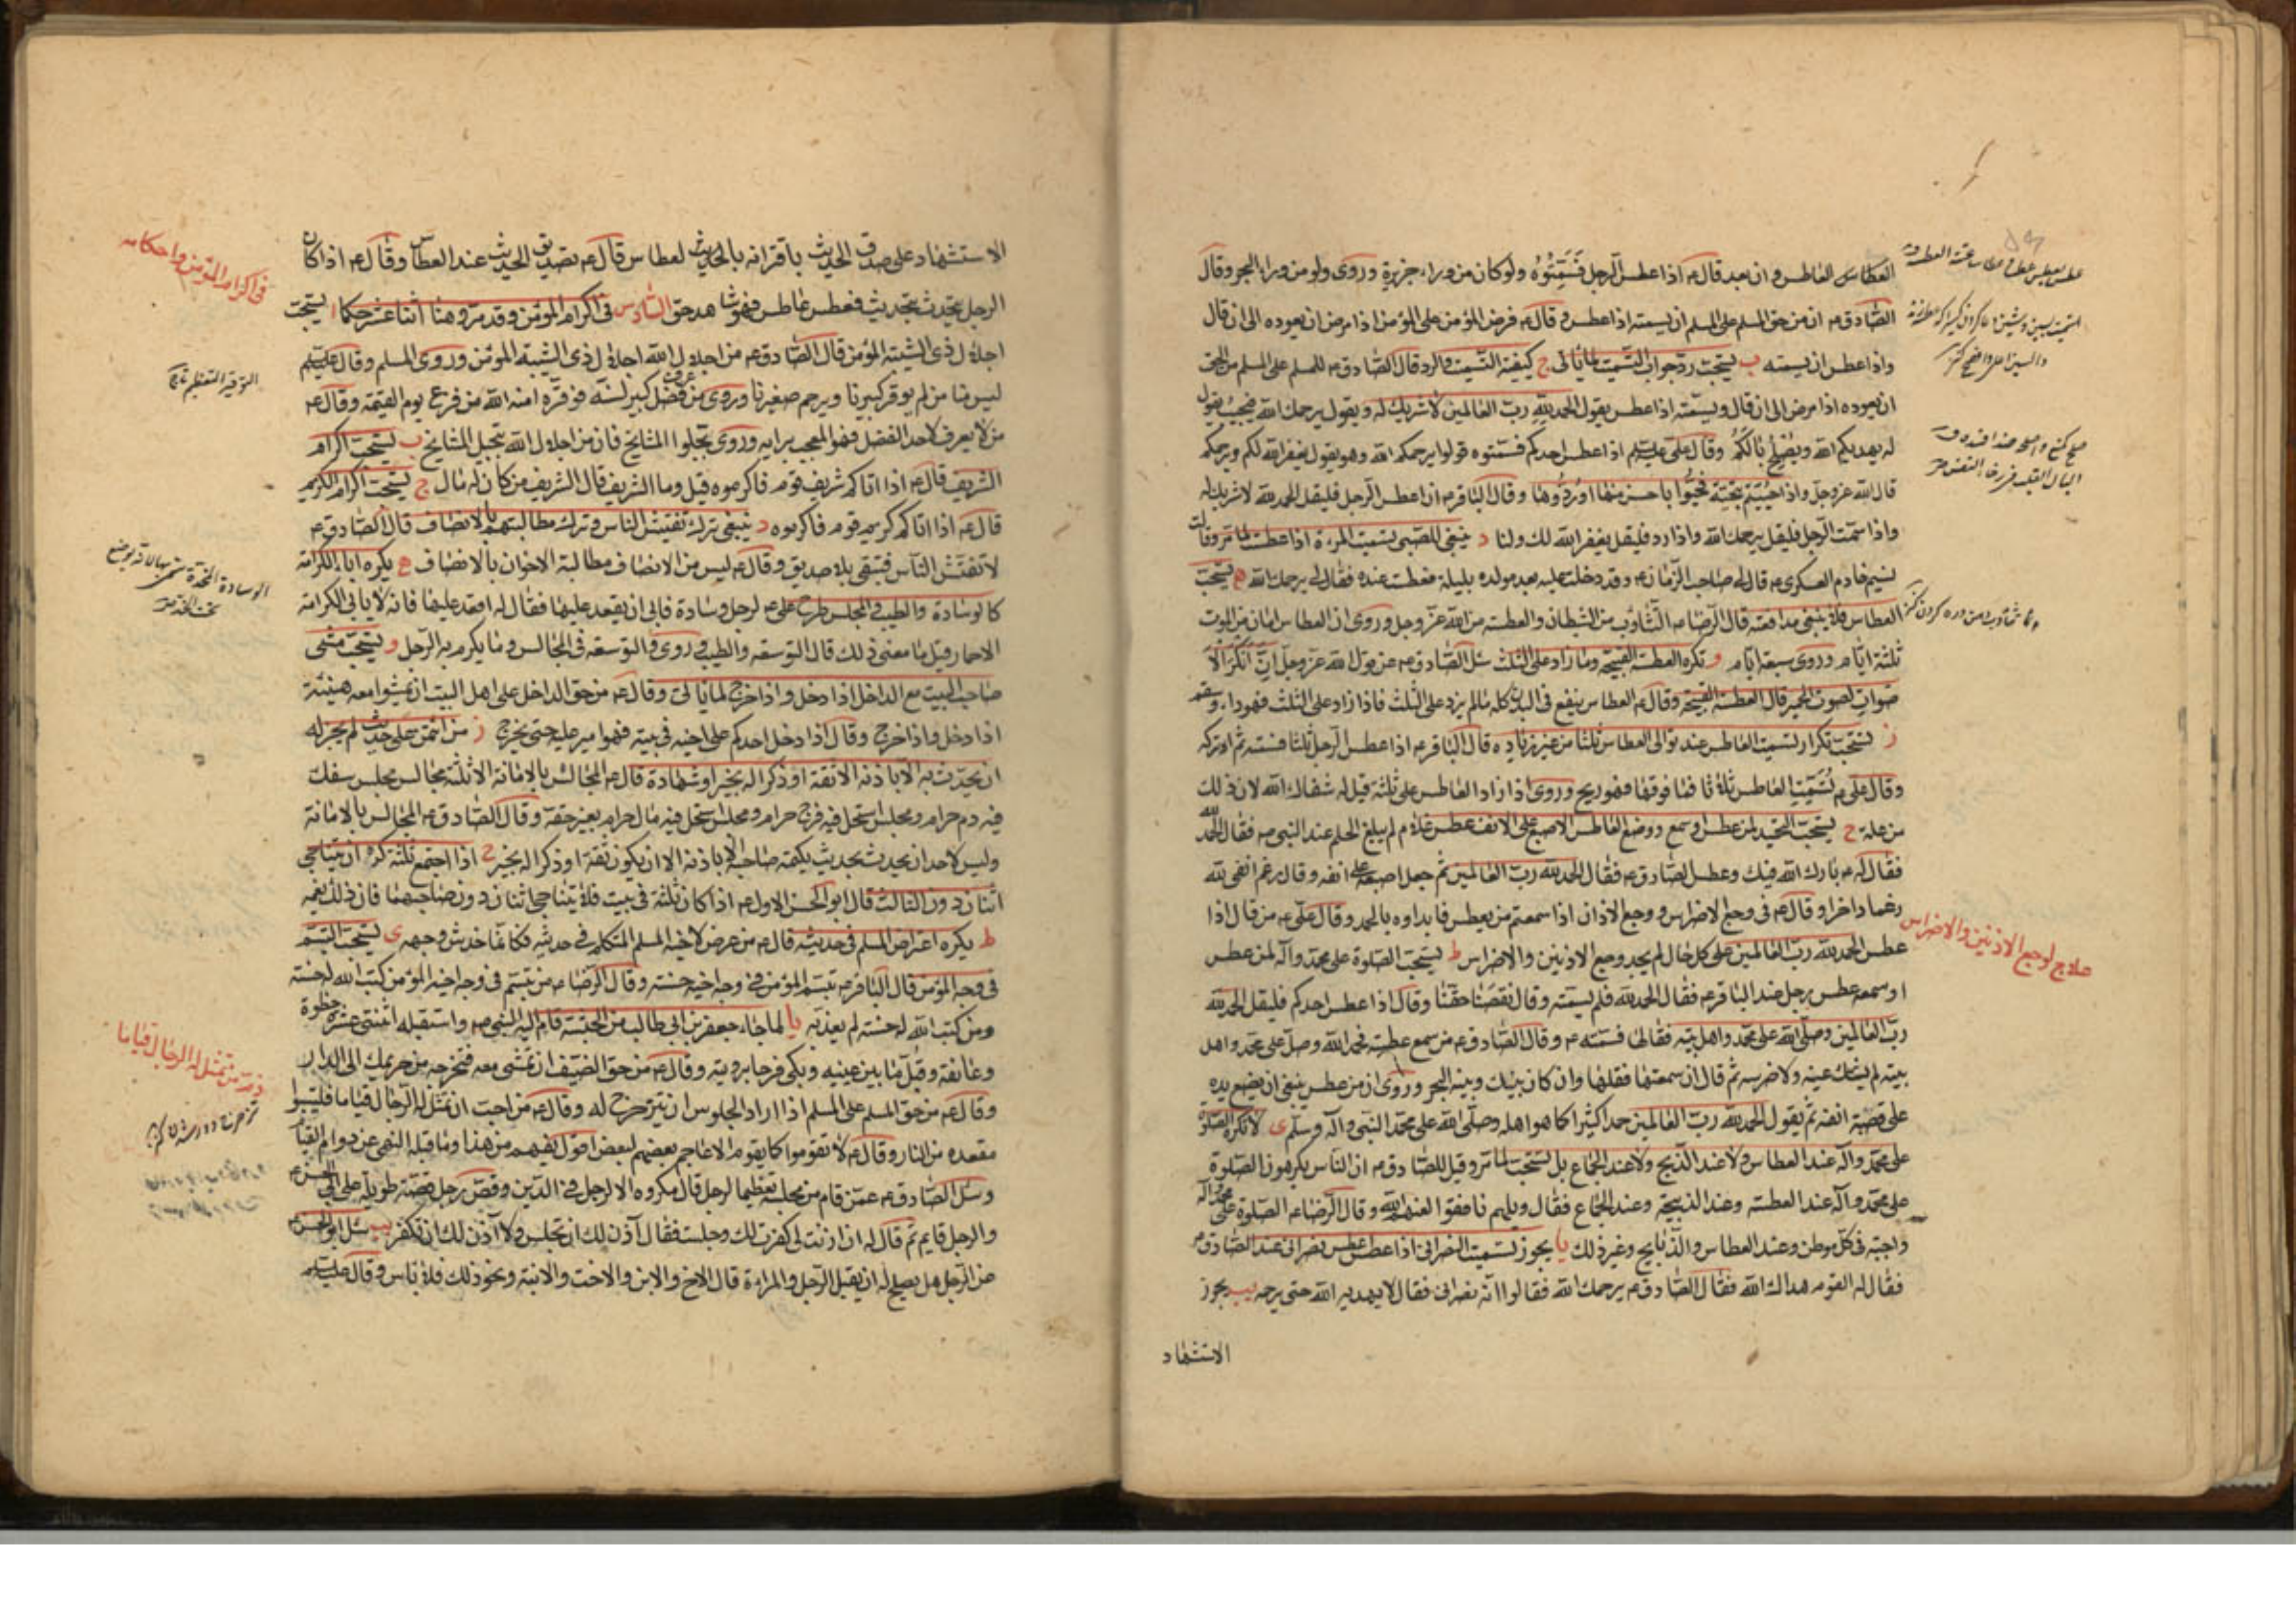 العطاس العاطس وان بعد قال ع اذا عطس الرجل فَسَمِّتُوْهُ ولو كان من وراء جزيرة وروى ولو من وراء البحر وقال
الصّادق ع ان من حق المسلم على المسلم ان يسمته اذا عطس وقال ع فرض المؤمن على المؤمن اذا مرض ان يعوده الى ان قال
واذا عطس ان يسمته ب يستحبّ ردّ جواب التسميت لما ياتى ج كيفية التسميت والرد قال الصّادق ع للمسلم على المسلم من الحق
ان يعوده اذا مرض الى ان قال ويسمّته اذا عطس يقول الحمد لله ربّ العالمين لا شريك له ويقول يرحمك الله فيجيبه يقول
له يهديكم الله ويُصْلِحُ بالَكُمْ وقال على عليسلم اذا عطس احدكم فسمّتوه قولوا يرحمكم الله وهو يقول يغفر الله لكم ويرحمكم
قال الله عز وجل واذا حُيّيتم بتحيّة فحيّوا باحسن منها او ردّوها وقال الباقر ع اذا عطس الرجل فليقل الحمد لله لا شريك له
واذا سمّت الرّجل فليقل يرحمك الله واذا رد فليقل يغفر الله لك ولنا د ينبغى للصبى تسميت المرءة اذا عطست لما مر وقالت
نسيم خادم العسكرى ع قال لى صاحب الزمان ع وقد دخلت عليه بعد مولده بليلة فعطست عنده فقال لى يرحمك الله ه يستحبّ
العطاس فلا ينبغى مدافعته قال الرّضا ع التّثاؤب من الشيطان والعطسة من الله عزّ وجل وروى ان العطاس امان من الموت
ثلثة ايّام وروى سبعة ايّام و تكره العطسة القبيحة وما زاد على الثلث سئل الصّادق ع عن قول الله عز وجل انّ انكر الا
صوات لصوت الحمير قال العطسة القبيحة وقال ع العطاس ينفع فى البدن كله ما لم يزد على الثلث فاذا زاد على الثلث فهو داء وسقم
ز يستحبّ تكرار تسميت العاطس عند توالى العطاس ثلثا من غير زيادة قال الباقر ع اذا عطس الرجل ثلثا فسمّته ثم اتركه
وقال على ع يُسَمَّت العاطس ثلاثا فما فوقها فهو ريح وروى اذا زاد العاطس على ثلثة قيل له شفاك الله لان ذلك
من علة ح يستحبّ التحميد لمن عطس او سمع ووضع العاطس الاصبع على الانف عطس غلام لم يبلغ الحلم عند النبى ص فقال الحمد لله
فقال له ص بارك الله فيك وعطس الصّادق ع فقال الحمد لله ربّ العالمين ثم جعل اصبعه على انفه وقال رغم انفى لله
رغما داخرا وقال ع فى وجع الاضراس ووجع الاذان اذا سمعتم من يعطس فابداوه بالحمد وقال على ع من قال اذا
عطس الحمد لله ربّ العالمين على كل حال لم يجد وجع الاذنين والاضراس ط يستحبّ الصّلوة على محمّد وآله لمن عطس
او سمعه عطس رجل عند الباقر ع فقال الحمد لله فلم يسمّته وقال نقصنا حقّنا وقال اذا عطس احدكم فليقل الحمد لله
ربّ العالمين وصلّى الله على محمّد واهل بيته فقالها فسمّته ع وقال الصّادق ع من سمع عطسة فحمد الله وصل على محمّد واهل
بيته لم يشتك عينه ولا ضرسه ثم قال ان سمعتها فقلها وان كان بينك وبينه البحر وروى ان من عطس ينبغى ان يضع يده
على قصبة انفه ثمّ يقول الحمد لله ربّ العالمين حمدا كثيرا كما هو اهله وصلّى الله على محمّد النّبى وآله وسلّم ى لا تكره الصّلوة
على محمّد وآله عند العطاس ولا عند الذّبح ولا عند الجماع بل تستحبّ لما مر وقيل للصّادق ع ان الناس يكرهون الصّلوة
على محمّد وآله عند العطسة وعند الذبيحة وعند الجماع فقال ويلهم نافقوا لعنهم الله وقال الرّضا ع الصّلوة على محمد وآله
واجبة فى كلّ موطن وعند العطاس والذّبايح وغير ذلك يا يجوز تسميت النصرانى اذا عطس عطس نصرانى عند الصّادق ع
فقال له القوم هداك الله فقال الصّادق ع يرحمك الله فقالوا انّه نصرانى فقال لا يهديه الله حتى يرحمه يب يجوز
الاستشهاد
علاج لوجع الاذنين والاضراس
الاستشهاد على صدق الحديث باقترانه بالحديث لعطاس قال ع تصديق الحديث عند العطاس وقال ع اذا كان
الرجل يتحدث بحديث فعطس عاطس فهو شاهد حق السّادس فى اكرام المؤمن وقد مرّ وهنا اثنا عشر حكما ا يستحبّ
اجلال ذى الشيبة المؤمن قال الصّادق ع من اجلال الله اجلال ذى الشيبة المؤمن وروى المسلم وقال عليسلم
ليس منا من لم يوقر كبيرنا ويرحم صغيرنا وروى من عرف فضل كبير لسنّه فوقّره آمنه الله من فزع يوم القيمة وقال ع
من لا يعرف لاحد الفضل فهو المعجب برايه وروى بجّلوا المشايخ فان من اجلال الله تبجيل المشايخ ب يستحبّ اكرام
الشريف قال ع اذا اتاكم شريف قوم فاكرموه قيل وما الشريف قال الشريف من كان له مال ج يستحبّ اكرام الكريم
قال ع اذا اتاكم كريم قوم فاكرموه د ينبغى ترك تفتيش الناس وترك مطالبتهم بالانصاف قال الصّادق ع
لا تفتّش النّاس فتبقى بلا صديق وقال ع ليس من الانصاف مطالبة الاخوان بالانصاف ه يكره اباء الكرامة
كالوسادة والطيب فى المجلس طرح على ع لرجل وسادة فابى ان يقعد عليها فقال له اقعد عليها فانه لا يابى الكرامة
الا حمار قيل ما معنى ذلك قال التوسعة والطيب وروى والتوسعة فى المجالس وما يكرم به الرّجل و يستحبّ مشى
صاحب البيت مع الداخل اذا دخل واذا خرج لما ياتى وقال ع من حق الداخل على اهل البيت ان يمشوا معه هنيئة
اذا دخل واذا خرج وقال اذا دخل احدكم على اخيه فى بيته فهو امير عليه حتى يخرج ز من ائتمن على حديث لم يجز له
ان يحدّث به الا باذنه الا ثقة او ذكرا له بخير او شهادة قال ع المجالس بالامانة الا ثلثة مجالس مجلس سفك
فيه دم حرام ومجلس استحل فيه فرج حرام ومجلس استحل فيه مال حرام بغير حقه وقال الصّادق ع المجالس بالامانة
وليس لاحد ان يحدث بحديث يكتمه صاحبه الا باذنه الا ان يكون ثقة او ذكرا له بخير ح اذا اجتمع ثلثة كره ان يتناجى
اثنان دون الثالث قال ابو الحسن الاول ع اذا كان ثلثة فى بيت فلا يتناجى اثنان دون صاحبهما فان ذلك يغمه
ط يكره اعتراض المسلم فى حديثه قال ع من عرض لاخيه المسلم المتكلم فى حديثه فكانما خدش وجهه ى يستحبّ التبسّم
فى وجه المؤمن قال الباقر ع تبسّم المؤمن فى وجه اخيه حسنة وقال الرّضا ع من تبسّم فى وجه اخيه المؤمن كتب الله له حسنة
ومن كتب الله له حسنة لم يعذبه يا لما جاء جعفر بن ابى طالب من الحبشة قام اليه النبى ص واستقبله اثنتى عشرة خطوة
وعانقه وقبّل ما بين عينيه وبكى فرحا برويته وقال ع من حق الضيف ان تمشى معه فتخرجه من حريمك الى الدار
وقال ع من حق المسلم على المسلم اذا اراد الجلوس ان يتزحزح له وقال ع من احب ان تمثل له الرّجال قياما فليتبوا
مقعده من النار وقال ع لا تقوموا كما يقوم الاعاجم بعضهم لبعض اقول يفهم من هذا وما قبله النهى عن دوام القيام
وسئل الصّادق ع عمّن قام من مجلسه تعظيما لرجل قال مكروه الا لرجل فى الدّين وقصّ رجل قصّة طويلة على ابى الحسن ع
والرجل قايم ثم قال له ان اذنت لى كفرت لك وجلست فقال آذن لك ان تجلس ولا آذن لك ان تكفر يب سئل ابو الحسن ع
عن الرّجل هل يصلح له ان يقبل الرّجل والمراءة قال الاخ والابن والاخت والابنة ونحو ذلك فلا باس وقال عليسلم
فى اكرام المؤمن واحكامه
التوقير التعظيم
ذم من تمثل له الرجال قياما